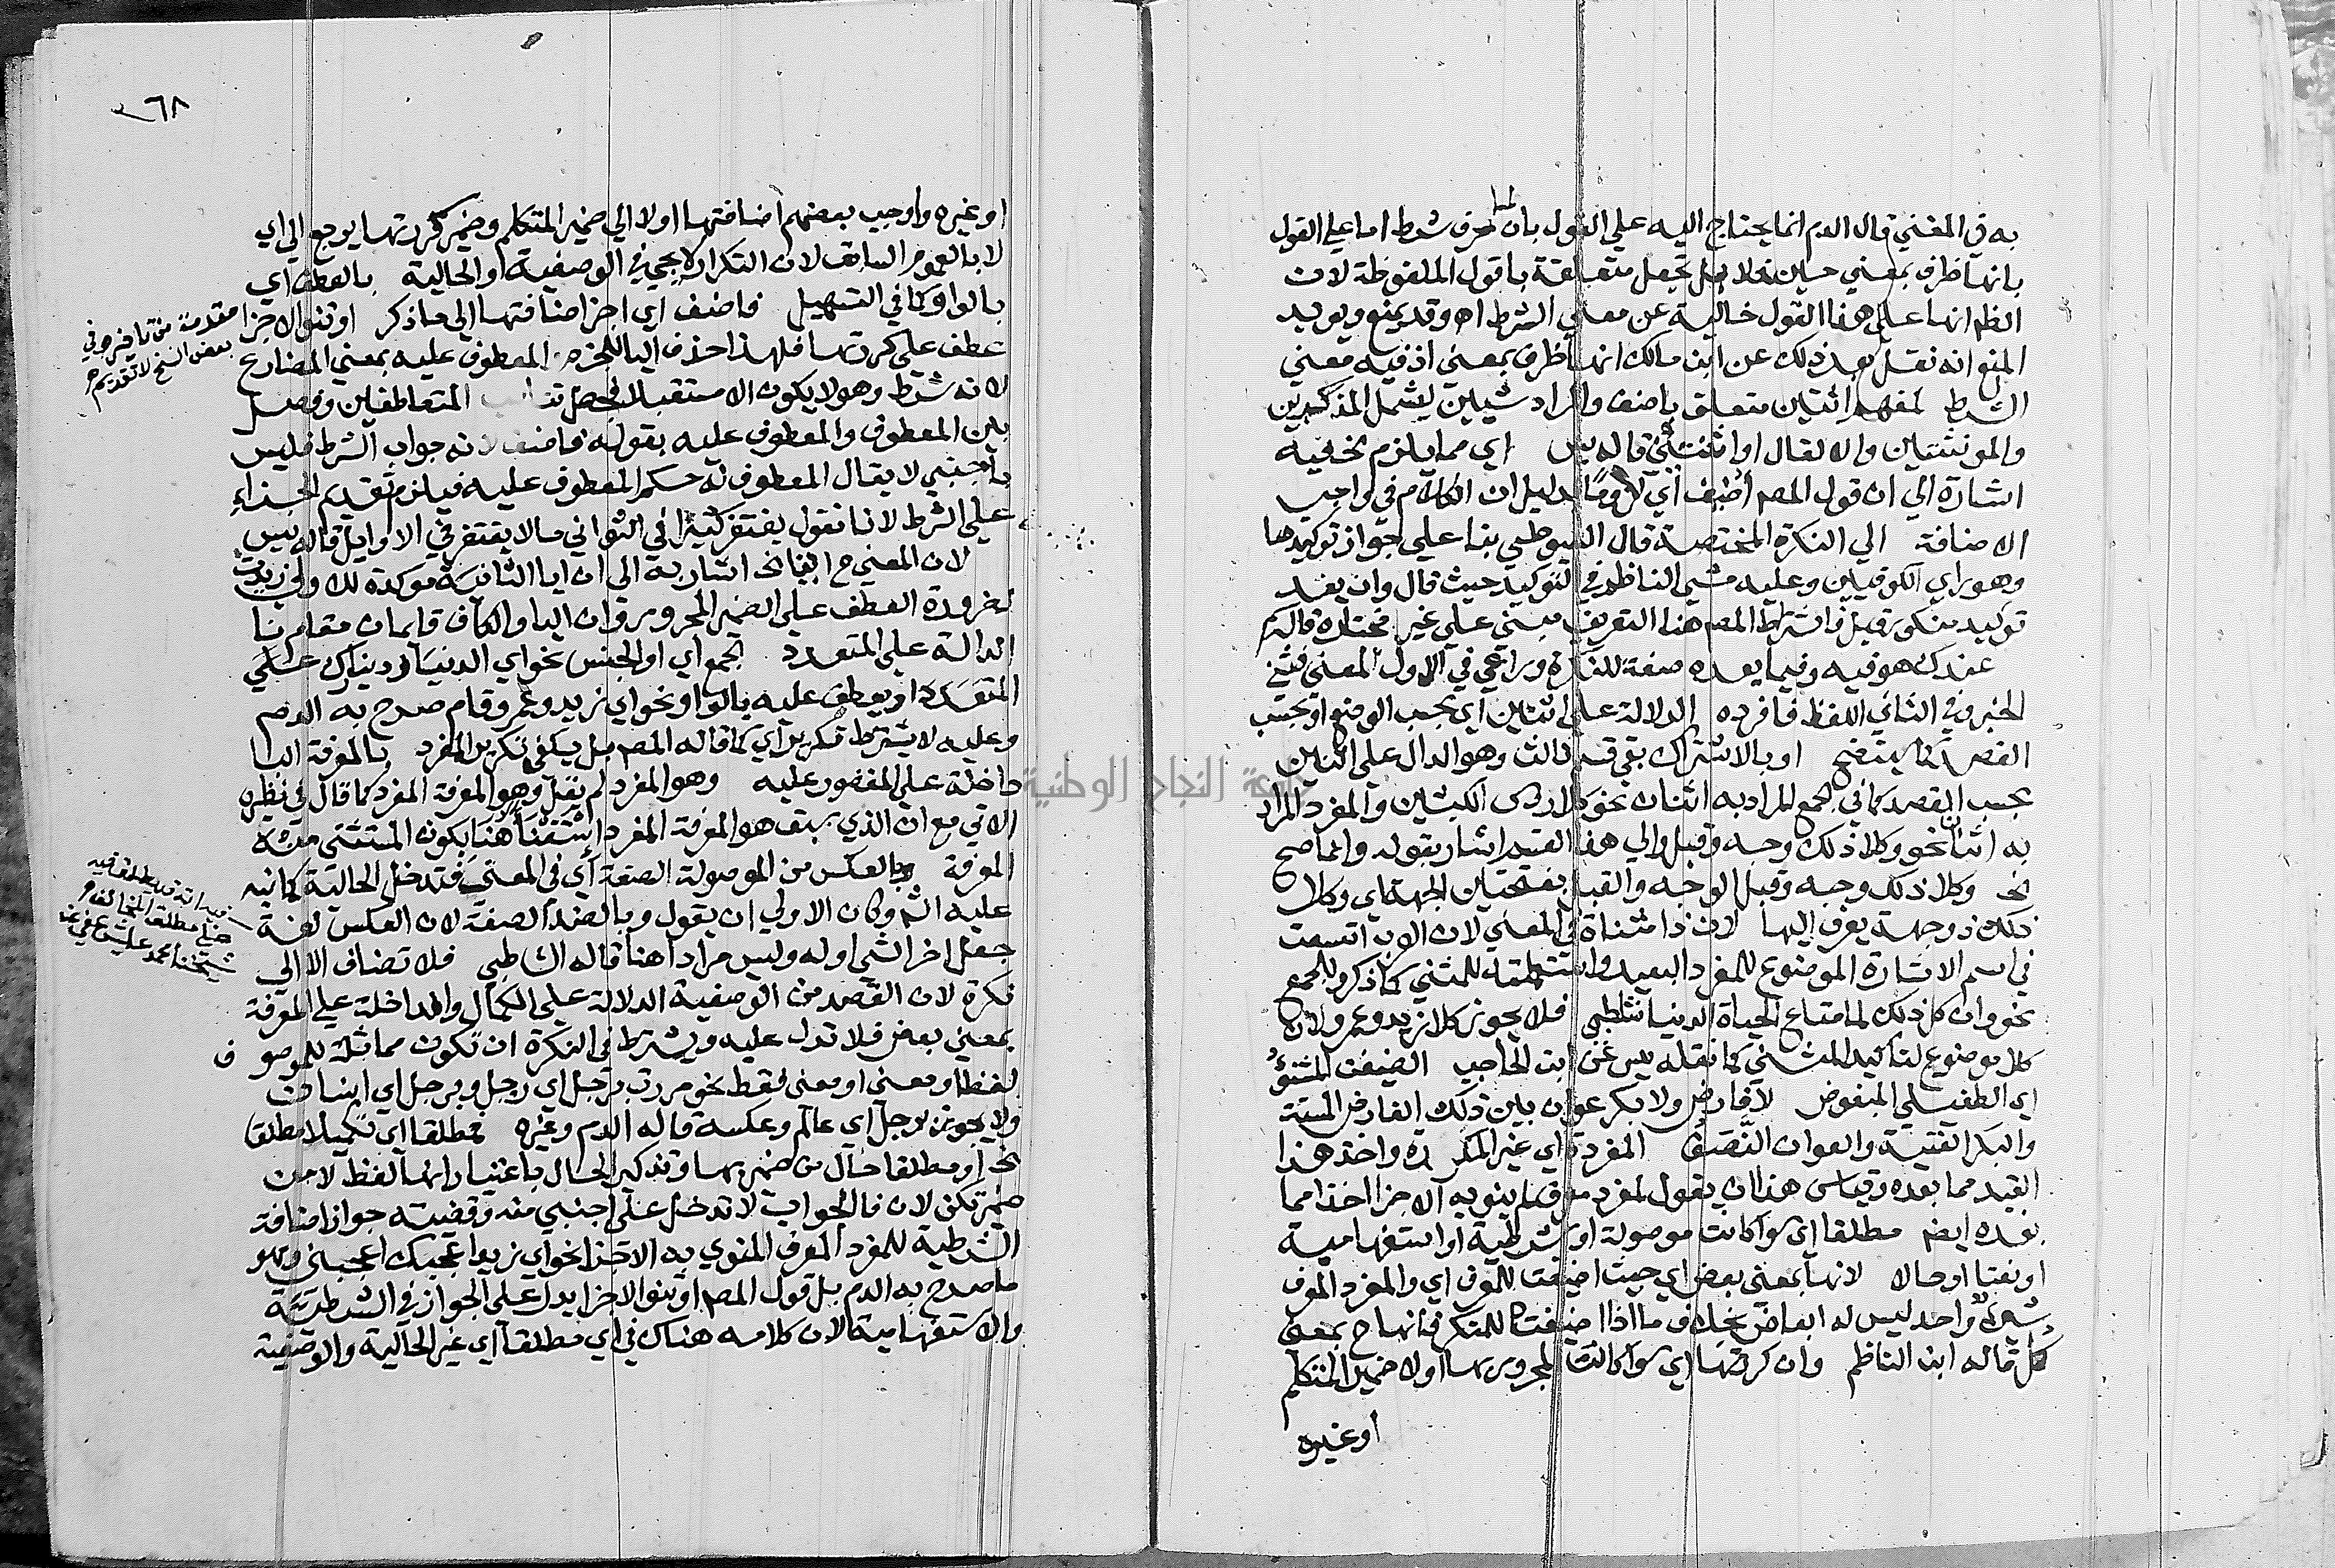 به في المغني قال الدم انما يحتاج اليه علي القول بان لما حرف شرط اما علي القول
بانها ظرف بمعني حين فلا بل تجعل متعلقة باقول الملفوظة لان
الظم انها علي هذا القول خالية عن معني الشرط اه وقد يمنع ويويد
المنع انه نقل بعد ذلك عن ابن مالك انها ظرف بمعني اذ فيه معني
الشرط لمفهم اثنين متعلق باضف والمراد شيين ليشمل المذكرين
والمونثتين والا لقال او اثنتين قاله يس اي مما يلزم الخ فيه
اشارة الي ان قول المص اضيف اي لزوما بدليل ان الكلام في واجب
الاضافة الي النكرة المختصة قال الشوطبي بنا علي جواز توكيدها
وهو راي الكوفيين وعليه مشي الناظم في التوكيد حيث قال وان يفد
توكيد منكور قبل فاشتراط المص هنا التعريف مبني علي غير مختاره قاله
عندك هو فيه وفيما بعده صفة للنكرة وراعي في الاول المعني فثني
الخبر وفي الثاني اللفظ فافرده الدلالة علي اثنين اي بحسب الوضع او بحسب
القصد كما يتضح او بالاشتراك بقي قسم ثالث وهو الدال علي اثنين
بحسب القصد كما في الجمع المراد به اثنان نحو كلا روس الكبشين والمفرد المراد
به اثنان نحو وكلا ذلك وجه وقبل والي هذا القسم اشار بقوله وانما صح
الخ وكلا ذلك وجه وقبل الوجه والقبل بفتحتين الجهة اي وكلا
ذلك ذو وجهة يعرف اليها لان ذا مثناة في المعني لان العرب اتسعت
في اسم الاشارة الموضوع للمفرد البعيد واستعملته للمثني كما ذكر وللجمع
نحو وان كل ذلك لما متاع الحياة الدنيا شاطبي فلا يجوز كلا زيد وعمرو لان
كلا موضوع لتاكيد المثني كما نقله يس عن ابن الحاجب الضيفن المشنوُ
اي الطفيلي المبغوض لا فارض ولا بكر عوان بين ذلك الفارض المسنة
والبكر الفتية والعوان النَّصَف المفردة اي غير المكررة واخذ هذا
القيد مما بعده وقياس هذا ان يقول لمفرد معرف لم ينو به الاجزا اخذا مما
بعده ايضا مطلقا اي سوا كانت موصولة او شرطية او استفهامية
او نعتا او حالا لانها بمعني بعض اي حيث اضيفت للمعرف اي والمفرد المعرف
شي واحد ليس له ابعاض بخلاف ما اذا اضيفت للمنكر فانها ح بمعني
كل قاله ابن الناظم وان كررتها اي سوا كانت المجرور بها اولا ضمير المتكلم
او غيره
٣٦٨
او غيره واوجب بعضهم اضافتها اولا الي ضمير المتكلم وضمير كررتها يرجع الي اي
لا بالعموم السابق لان التكرار لا يجي في الوصفية او الحالية بالعطف اي
بالواو كما في التسهيل فاضف اي اجز اضافتها الي ما ذكر او تنو الاجزا
عطف علي كررتها فلهذا حذف اليا للجزم المعطوف عليه بمعني المضارع
لانه شرط وهو لا يكون الا مستقبلا فحصل تناسب المتعاطفين وفصل
بين المعطوف والمعطوف عليه بقوله فاضف لانه جواب الشرط فليس
باجنبي لا يقال المعطوف له حكم المعطوف عليه فيلزم تقديم الجزاء
علي الشرط لانا نقول يغتفر كثيرا في الثواني ما لا يغتفر في الاوايل قاله يس
لان المعني ح اينا الخ اشار به الي ان ايا الثانية موكدة للاولي زيدت
لضرورة العطف علي الضمير المجرور وان اليا والكاف قايمان مقام نا
الدالة علي المتعدد الجمع اي او الجنس نحو اي الدنيار دينارك علي
المتعددة او يعطف عليه بالواو نحو اي زيد وعمرو قام صرح به الدم
وعليه لا يشترط تكرير اي كما قاله المص بل يكفي تكرير المفرد بالمعرفة البا
داخلة علي المقصور عليه وهو المفرد لم يقل وهو المعرفة المفرد كما قال في نظيره
الاتي مع ان الذي سبق هو المعرفة المفرد استغنا هنا بكون المستثني منه
المعرفة وبالعكس من الموصولة الصفة اي في المعني فتدخل الحالية كما نبه
عليه الشم وكان الاولي ان يقول وبالضد الصفة لان العكس لغة
جعل اخر الشي اوله وليس مرادا هنا قاله الشاطبي فلا تضاف الا الي
نكرة لان القصد من الوصفية الدلالة علي الكمال والداخلة علي المعرفة
بمعني بعض فلا تدل عليه ويشترط في النكرة ان تكون مماثلة للموصوف
لفظا ومعني او معني فقط نحو مررت برجل اي رجل وبرجل اي انسان
ولا يجوز برجل اي عالم وعكسه قاله الدم وغيره فمطلقا اي تكميلا مطلقا
الخ او مطلقا حال من ضمير بها وتذكير الحال باعتبار انها لفظ لا من
ضمير تكن لان فا الجواب لا تدخل علي اجنبي منه وقضيته جواز اضافة
الشرطية للمفرد المعرف المنوي به الاجزا نحو اي زيد اعجبك اعجبني وهو
ما صرح به الدم بل قول المص او تنو الاجزا يدل علي الجواز في الشرطية
والاستفهامية لان كلامه هناك في اي مطلقا اي غير الحالية والوصفية
مقدمة من تاخير وفي
بعض النسخ لا تقديم
فيه انه قد يطلق فيه
ضد مطلق المخالف
شيخنا محمد عليش عفي عنه
جامعة النجاح الوطنية